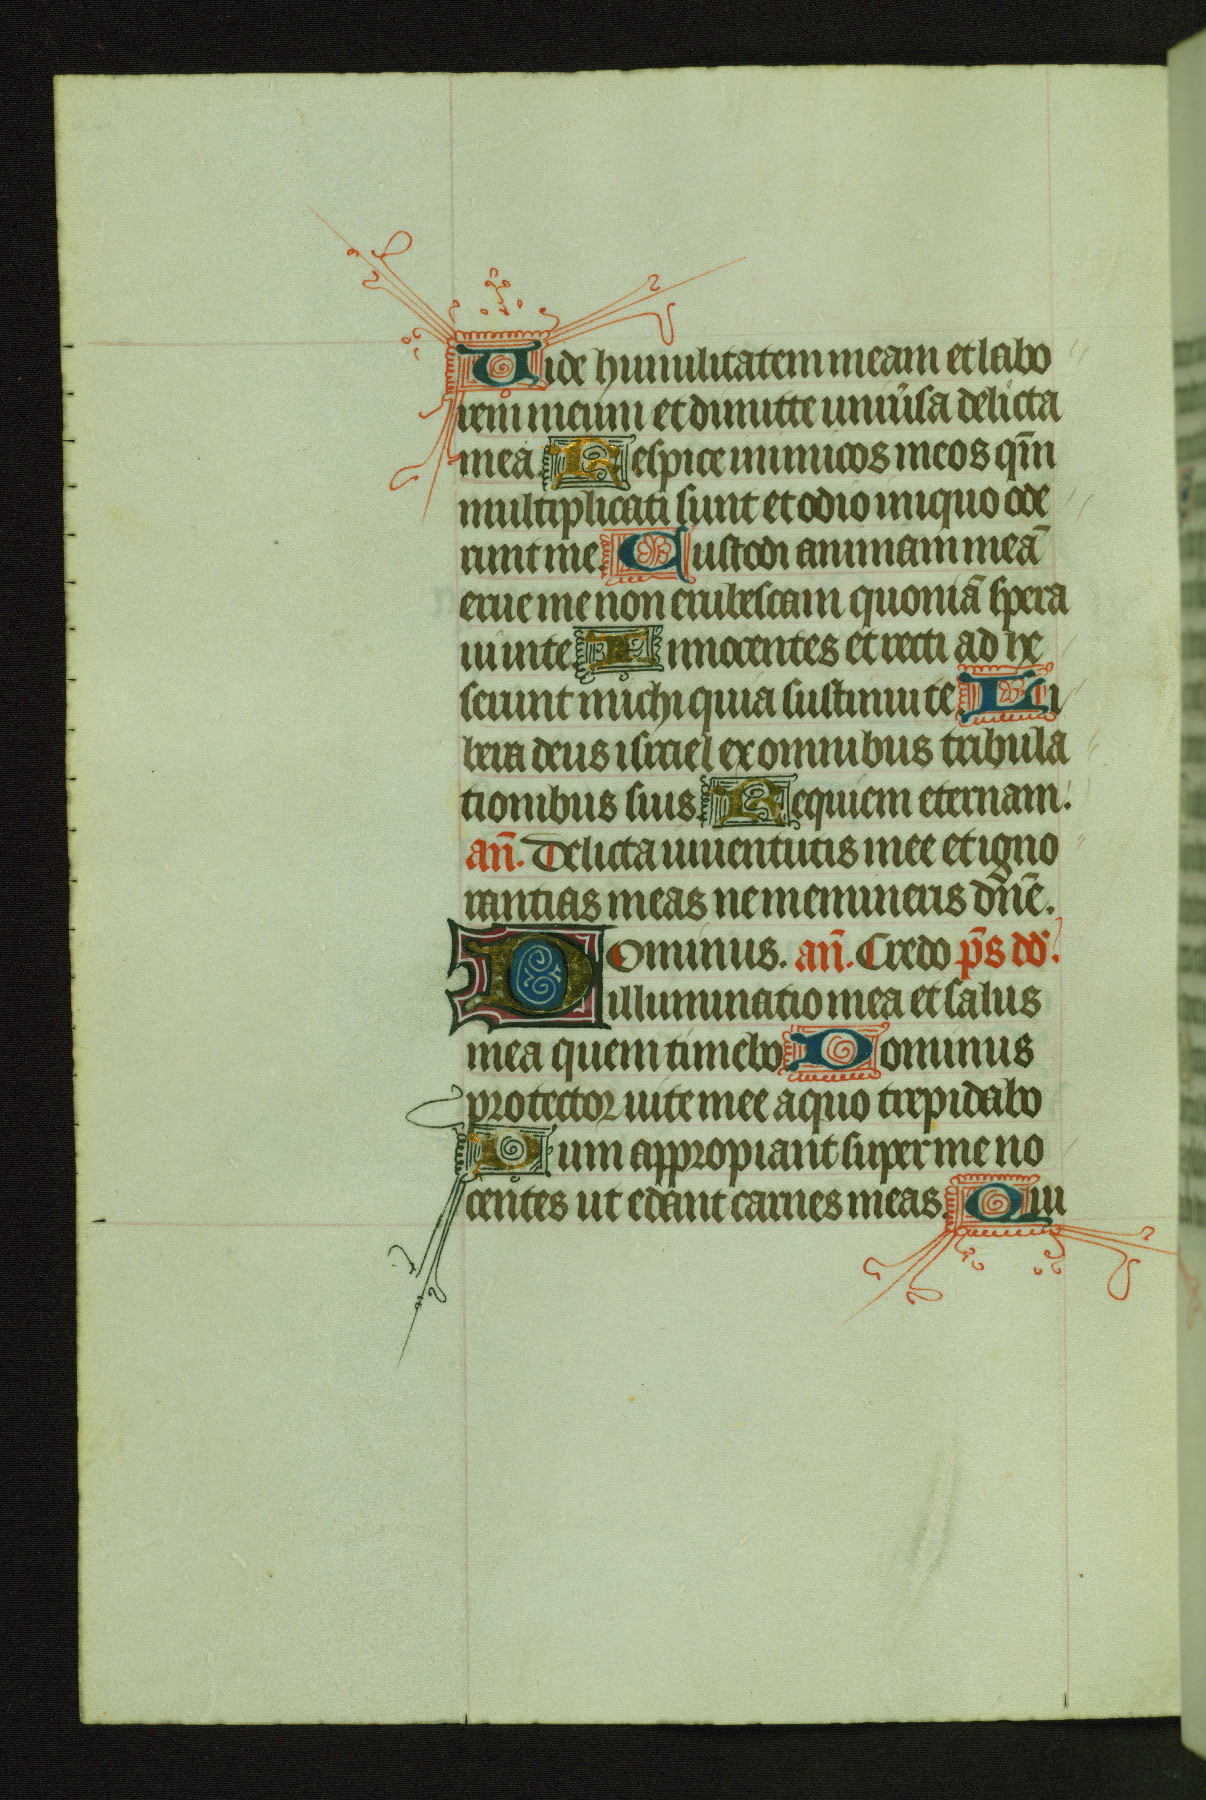 Uide humilitatem meam et labo
rem meum et dimitte uniu̾sa delicta
mea Respice inimicos meos qm̄
multiplicati sunt et odio iniquo ode
runt me. Custodi animam meā
erue me non erubescam quoniā spera
ui in te. Innocentes et recti adhe
serunt michi quia sustinui te. Li
bera deus israel ex omnibus tribula
tionibus suis. Requiem eternam.
an̄. Delicta iuuentutis mee et igno
rantias meas ne memineris dn̄e.
Dominus. an̄. Credo p̄s dd.
illuminatio mea et salus
mea quem timebo Dominus
protector uite mee a quo trepidabo
Dum appropiant super me no
centes ut edant carnes meas. Qui